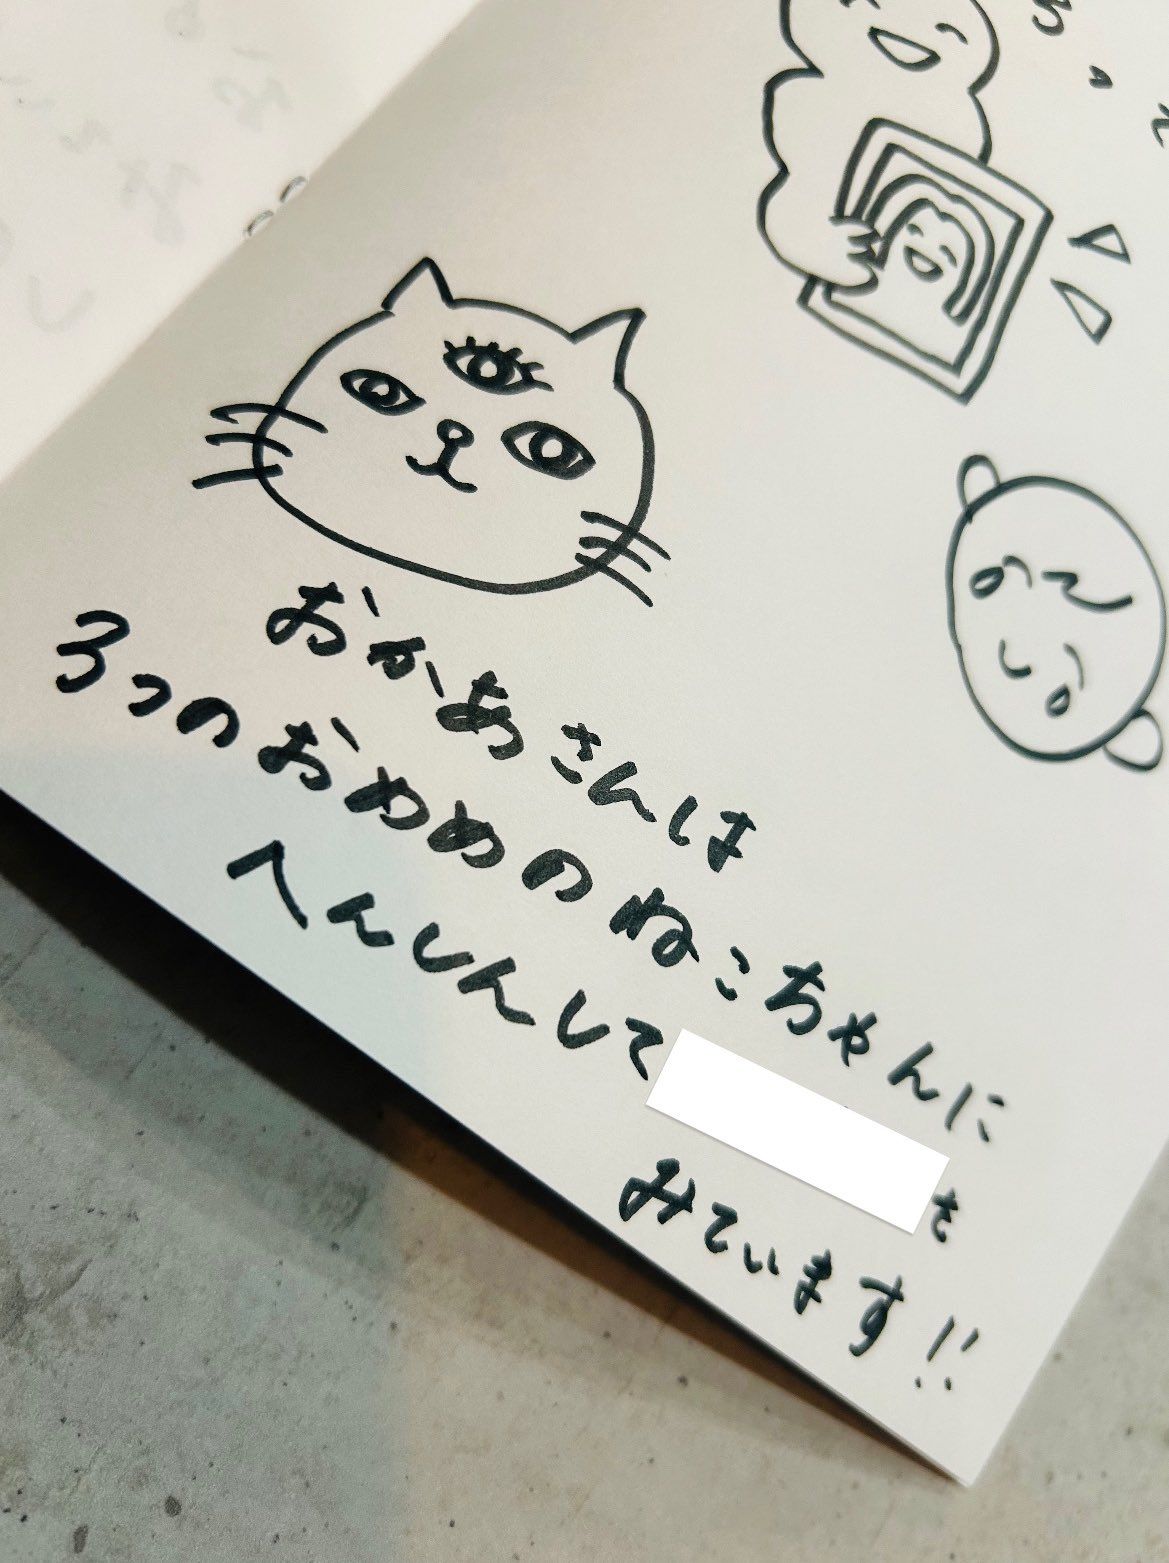 おかあさんは
3つのおめめのねこちゃんに
へんしんして
を
みています!!